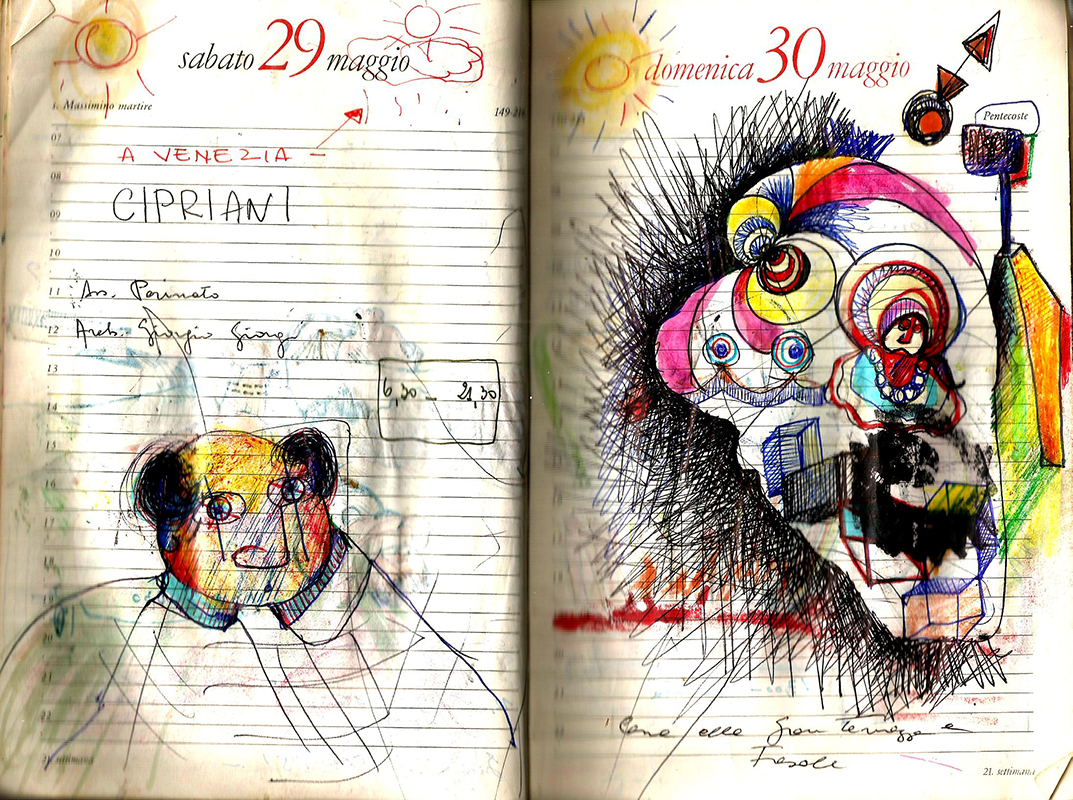 sabato 29 maggio
s. Massimino martire
149-216
07
A VENEZIA
08
CIPRIANI
09
10
11
12
Arch. Giorgio Giorgi
13
6,30 - 21,30
14
15
16
17
18
19
20
21
22
settimana
domenica 30 maggio
Pentecoste
Cena alla Gran Terrazza a
Fiesole
21. settimana